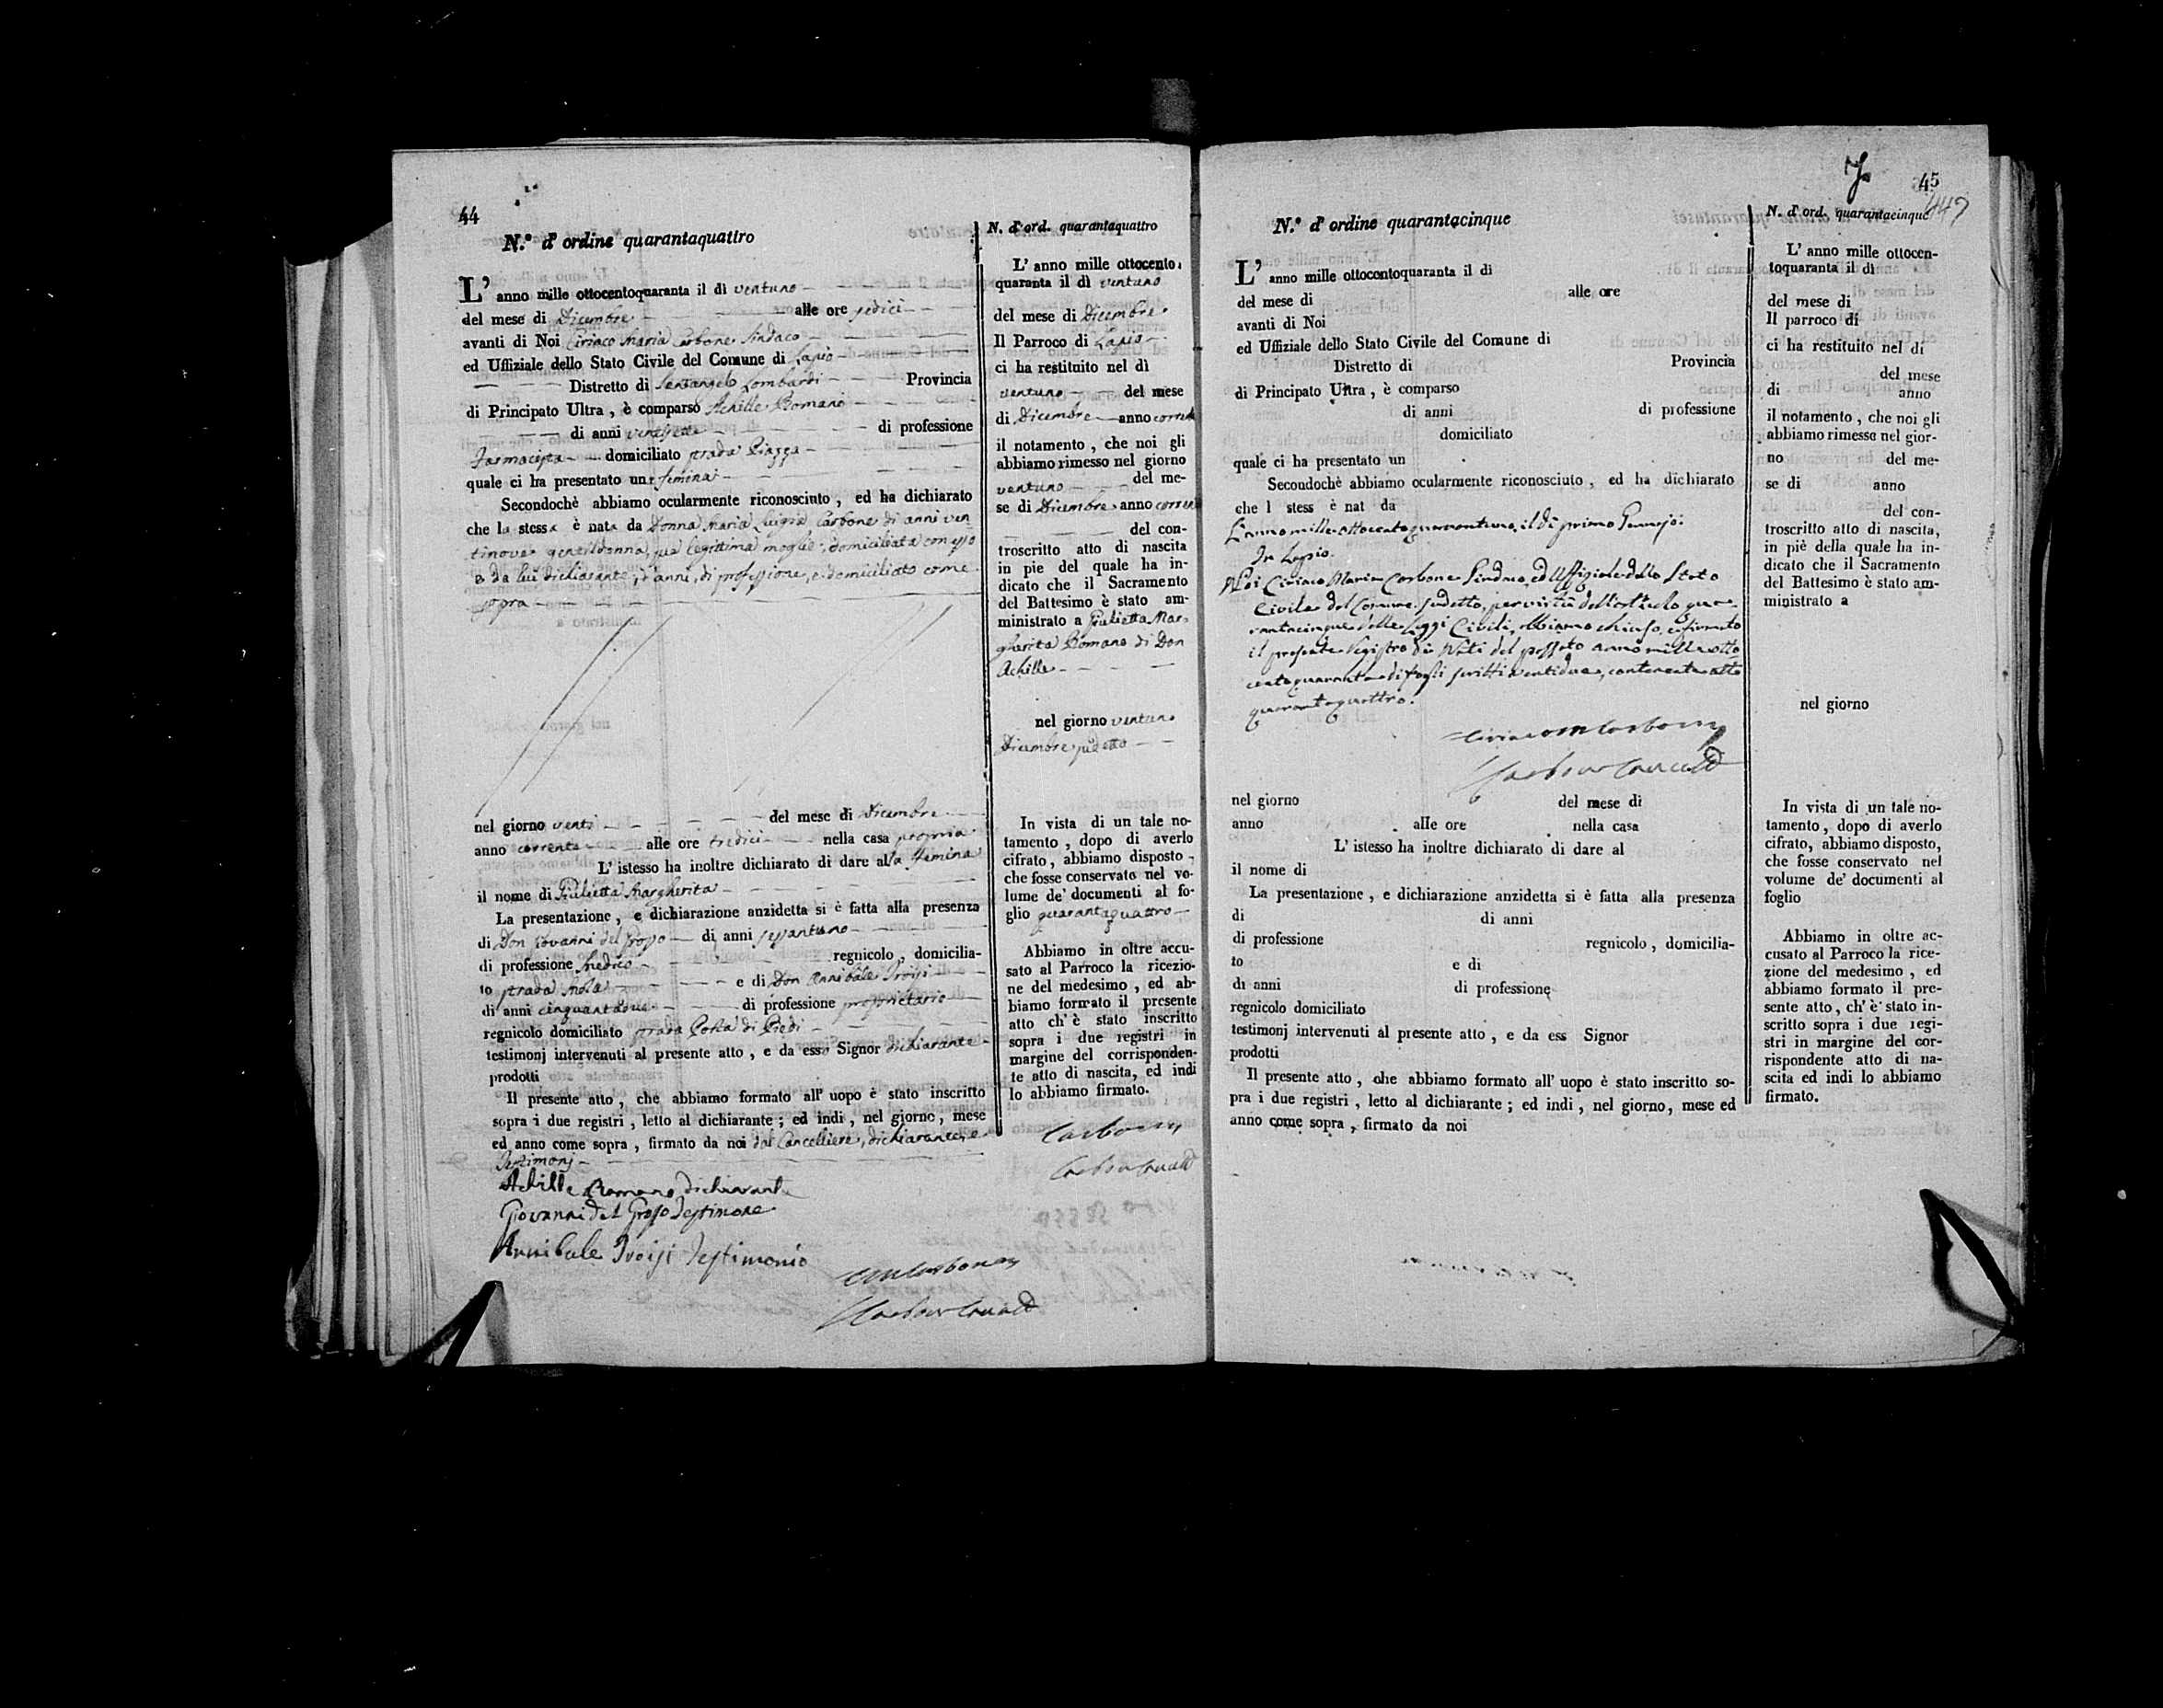 44
N.° d' ordine quarantaquattro
L' anno mille ottocentoquaranta il dì ventuno
del mese di Dicembre alle ore sedici
avanti di Noi Ciriaco Maria Carbone Sindaco
ed Uffiziale dello Stato Civile del Comune di Lapio
Distretto di Santangelo Lombardi Provincia
di Principato Ultra, è comparso Achille Romano
di anni ventisette di professione
Farmacista domiciliato strada Piazza
quale ci ha presentato una femina
Secondochè abbiamo ocularmente riconosciuto, ed ha dichiarato
che la stessa è nata da Donna Maria Luigia Carbone di anni ven
tinove gentildonna sua legittima moglie, domiciliata con esso
e da lui dichiarante, d'anni, di professione, e domiciliato come
sopra
nel giorno venti del mese di Dicembre
anno corrente alle ore tredici nella casa propria
L' istesso ha inoltre dichiarato di dare alla femina
il nome di Giulietta Margherita
La presentazione, e dichiarazione anzidetta si è fatta alla presenza
di Don Giovanni del Grosso di anni sessantuno
di professione Medico regnicolo, domicilia-
to strada Mola e di Don Annibale Troisi
di anni cinquantadue di professione proprietario
regnicolo domiciliato strada Costa di Piedi
testimonj intervenuti al presente atto, e da esso Signor dichiarante
prodotti
Il presente atto, che abbiamo formato all' uopo è stato inscritto
sopra i due registri, letto al dichiarante; ed indi, nel giorno, mese
ed anno come sopra, firmato da noi dal Cancelliere, dichiarante, e
Testimonj
Achille Romano dichiarante
Giovanni del Grosso Testimone
Annibale Troisi Testimonio
CMCarbone
Carbone
N. d'ord. quarantaquattro
L' anno mille ottocento
quaranta il dì ventuno
del mese di Dicembre
Il Parroco di Lapio
ci ha restituito nel dì
ventuno del mese
di Dicembre anno corrente
il notamento, che noi gli
abbiamo rimesso nel giorno
ventuno del me-
se di Dicembre anno corrente
del con-
troscritto atto di nascita
in pie del quale ha in-
dicato che il Sacramento
del Battesimo è stato am-
ministrato a Giulietta Mar-
gherita Romano di Don
Achille
nel giorno ventuno
Dicembre sudetto
In vista di un tale no-
tamento, dopo di averlo
cifrato, abbiamo disposto,
che fosse conservato nel vo-
lume de' documenti al fo-
glio quarantaquattro
Abbiamo in oltre accu-
sato al Parroco la ricezio-
ne del medesimo, ed ab-
biamo formato il presente
atto ch' è stato inscritto
sopra i due registri in
margine del corrisponden-
te atto di nascita, ed indi
lo abbiamo firmato.
Carbone
Carbone
45
447
N.° d' ordine quarantacinque
L' anno mille ottocentoquaranta il di
del mese di alle ore
avanti di Noi
ed Uffiziale dello Stato Civile del Comune di
Distretto di Provincia
di Principato Ultra, è comparso
di anni di professione
domiciliato
quale ci ha presentato un
Secondochè abbiamo ocularmente riconosciuto, ed ha dichiarato
che l stess è nat da
L'anno mille ottocento quarantuno, il dì primo Gennajo:
In Lapio.
Noi Ciriaco Maria Carbone Sindaco, ed Uffiziale dello Stato
Civile del Comune sudetto, per virtù dell'articolo qua-
rantacinque delle Leggi Civili, abbiamo chiuso, e firmato
il presente Registro de' Nati del passato anno mille otto
cento quaranta di fogli scritti ventidue, contenente atti
quarantaquattro.
Ciriaco M Carbone
Carbone
nel giorno del mese di
anno alle ore nella casa
L' istesso ha inoltre dichiarato di dare al
il nome di
La presentazione, e dichiarazione anzidetta si è fatta alla presenza
di di anni
di professione regnicolo, domicilia-
to e di
di anni di professione
regnicolo domiciliato
testimonj intervenuti al presente atto, e da ess Signor
prodotti
Il presente atto, che abbiamo formato all' uopo è stato inscritto so-
pra i due registri, letto al dichiarante; ed indi, nel giorno, mese ed
anno come sopra, firmato da noi
N. d'ord. quarantacinque
L' anno mille ottocen-
toquaranta il dì
del mese di
Il parroco di
ci ha restituito nel di
del mese
di anno
il notamento, che noi gli
abbiamo rimesso nel gior-
no del me-
se di anno
del con-
troscritto atto di nascita,
in piè della quale ha in-
dicato che il Sacramento
del Battesimo è stato am-
ministrato a
nel giorno
In vista di un tale no-
tamento, dopo di averlo
cifrato, abbiamo disposto,
che fosse conservato nel
volume de' documenti al
foglio
Abbiamo in oltre ac-
cusato al Parroco la rice-
zione del medesimo, ed
abbiamo formato il pre-
sente atto, ch' è stato in-
scritto sopra i due regi-
stri in margine del cor-
rispondente atto di na-
scita ed indi lo abbiamo
firmato.